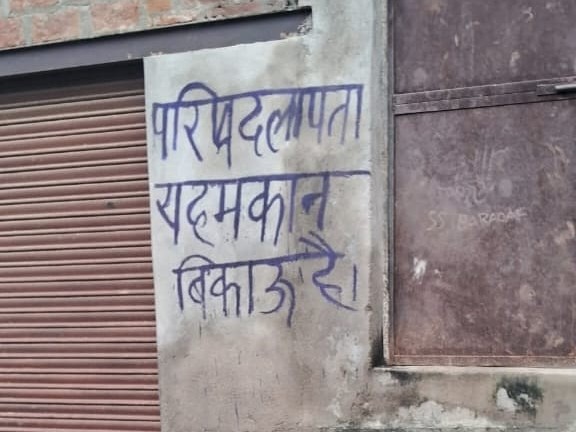 परिषदलापता
यहमकान
बिकाऊ है।
SS